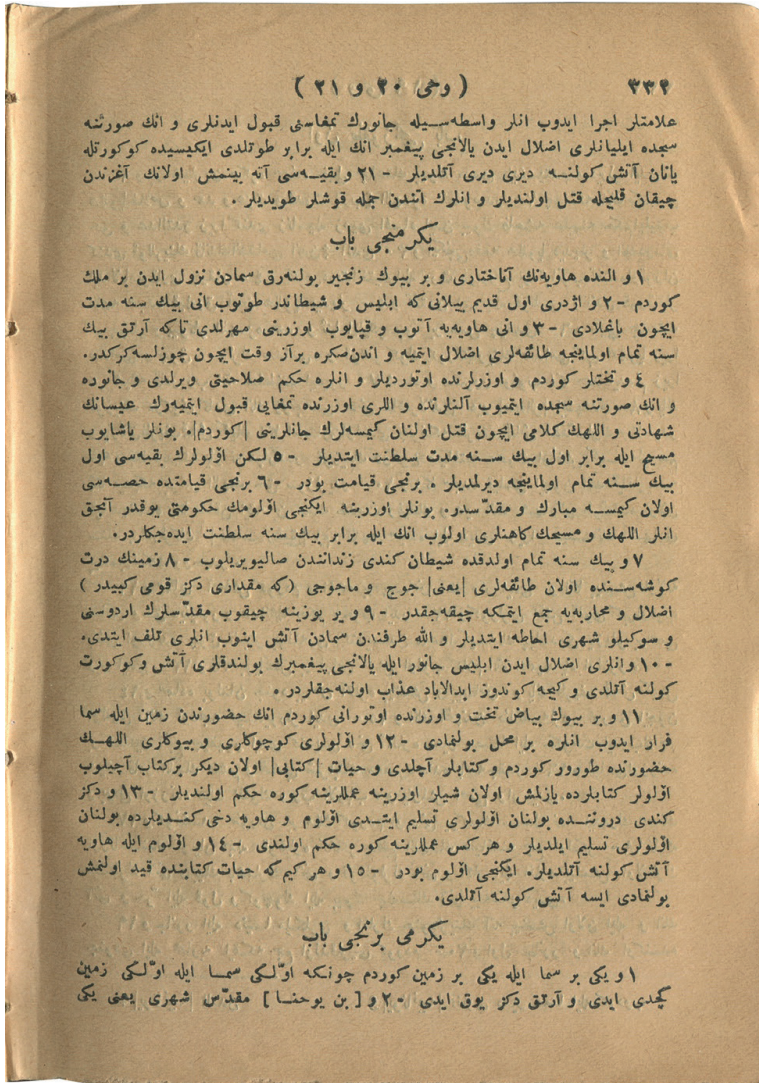 ( وحی ۲۰ و ۲۱ ) ۳۳۲
علامتلر اجرا ایدوب انلر واسطه‌سـیله جانورك تمغاسنی قبول ایدنلری و انك صورتنه
سجده ایلیانلری اضلال ایدن یالانجی پیغمبر انك ایله برابر طوتلدی ایکیسیده کوکورتله
یانان آتش کولنـه دیری دیری آتلدیلر -۲۱ و بقیـه‌سی آته بینمش اولانك آغزندن
چیقان قلیجله قتل اولندیلر و انلرك اتندن جمله قوشلر طویدیلر .
یکرمنجی باب
۱ و النده هاویه‌نك آناختاری و بر بیوك زنجیر بولنه‌رق سمادن نزول ایدن بر ملك
کوردم -۲ و اژدری اول قدیم ییلانی که ابلیس و شیطاندر طوتوب انی بیك سنه مدت
ایچون باغلادی -۳ و انی هاویه‌یه آتوب و قپایوب اوزرینی مهرلدی تاکه آرتق بیك
سنه تمام اولماینجه طائفه‌لری اضلال ایتمیه و اندن‌صکره برآز وقت ایچون چوزلسه‌کرکدر.
٤ و تختلر کوردم و اوزرلرنده اوتوردیلر و انلره حکم صلاحیتی ویرلدی و جانوره
و انك صورتنه سجده ایتمیوب آلنلرنده و اللری اوزرنده تمغایی قبول ایتمیه‌رك عیسانك
شهادتی و اللهك کلامی ایچون قتل اولنان کیمسه‌لرك جانلرینی |کوردم|. بونلر یاشایوب
مسیح ایله برابر اول بیك سـنه مدت سلطنت ایتدیلر -٥ لکن اؤلولرك بقیه‌سی اول
بیك سـنه تمام اولماینجه دیرلمدیلر . برنجی قیامت بودر -٦ برنجی قیامتده حصـه‌سی
اولان کیمسـه مبارك و مقدّسدر. بونلر اوزرینه ایکنجی اؤلومك حکومتی یوقدر آنجق
انلر اللهك و مسیحك کاهنلری اولوب انك ایله برابر بیك سنه سلطنت ایده‌جکلردر.
۷ و بیك سنه تمام اولدقده شیطان کندی زندانندن صالیویریلوب -۸ زمینك درت
کوشه‌سـنده اولان طائفه‌لری |یعنی| جوج و ماجوجی (که مقداری دکز قومی کبیدر )
اضلال و محاربه‌یه جمع ایتمکه چیقه‌جقدر -۹ و یر یوزینه چیقوب مقدّسلرك اردوسنی
و سوکیلو شهری احاطه ایتدیلر و الله طرفندن سمادن آتش اینوب انلری تلف ایتدی.
-۱۰ وانلری اضلال ایدن ابلیس جانور ایله یالانجی پیغمبرك بولندقلری آتش وکوکورت
کولنه آتلدی و کیجه کوندوز ابدالاباد عذاب اولنه‌جقلردر.
۱۱ و بر بیوك بیاض تخت و اوزرنده اوتورانی کوردم انك حضورندن زمین ایله سما
فرار ایدوب انلره بر محل بولنمادی -۱۲ و اؤلولری کوچوکلری و بیوکلری اللهـك
حضورنده طورور کوردم و کتابلر آچلدی و حیات |کتابی| اولان دیکر برکتاب آچیلوب
اؤلولر کتابلرده یازلمش اولان شیلر اوزرینه عمللرینه کوره حکم اولندیلر -۱۳ و دکز
کندی دروننـده بولنان اؤلولری تسلیم ایتـدی اؤلوم و هاویه دخی کنـدیلرده بولنان
اؤلولری تسلیم ایلدیلر و هرکس عمللرینه کوره حکم اولندی -۱٤ و اؤلوم ایله هاویه
آتش کولنه آتلدیلر. ایکنجی اؤلوم بودر -۱٥ و هرکیم که حیات کتابنده قید اولنمش
بولنمادی ایسه آتش کولنه آتلدی.
یکرمی برنجی باب
۱ و یکی بر سما ایله یکی بر زمین کوردم چونکه اوّلکی سمـا ایله اوّلکی زمین
کچدی ایدی و آرتق دکز یوق ایدی -۲ و [ بن یوحنـا ] مقدّس شهری یعنی یکی